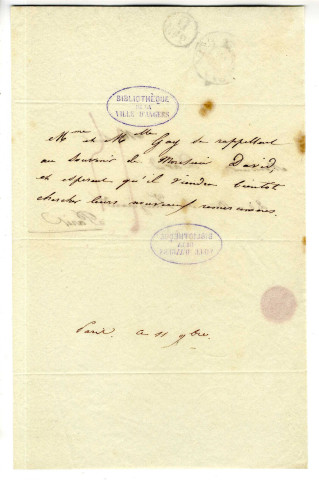 BIBLIOTHÈQUE
DE LA
VILLE D'ANGERS
Mme et Mlle Gay se rappellent
au souvenir de Monsieur David,
et espérant qu'il viendra bientôt
chercher leurs nouveaux remerciemens.
BIBLIOTHÈQUE
DE LA
VILLE D'ANGERS
Paris. ce 11 9bre.